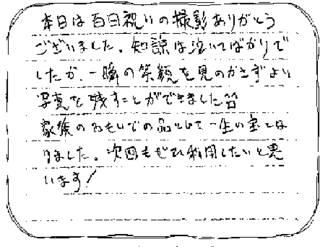 本日は百日祝いの撮影ありがとう
ございました。知諒は泣いてばかりで
したが、一瞬の笑顔を見のがさずよい
写真を残すことができました
家族のおもいでの品として一生の宝とな
りました。次回もぜひ利用したいと思
います!